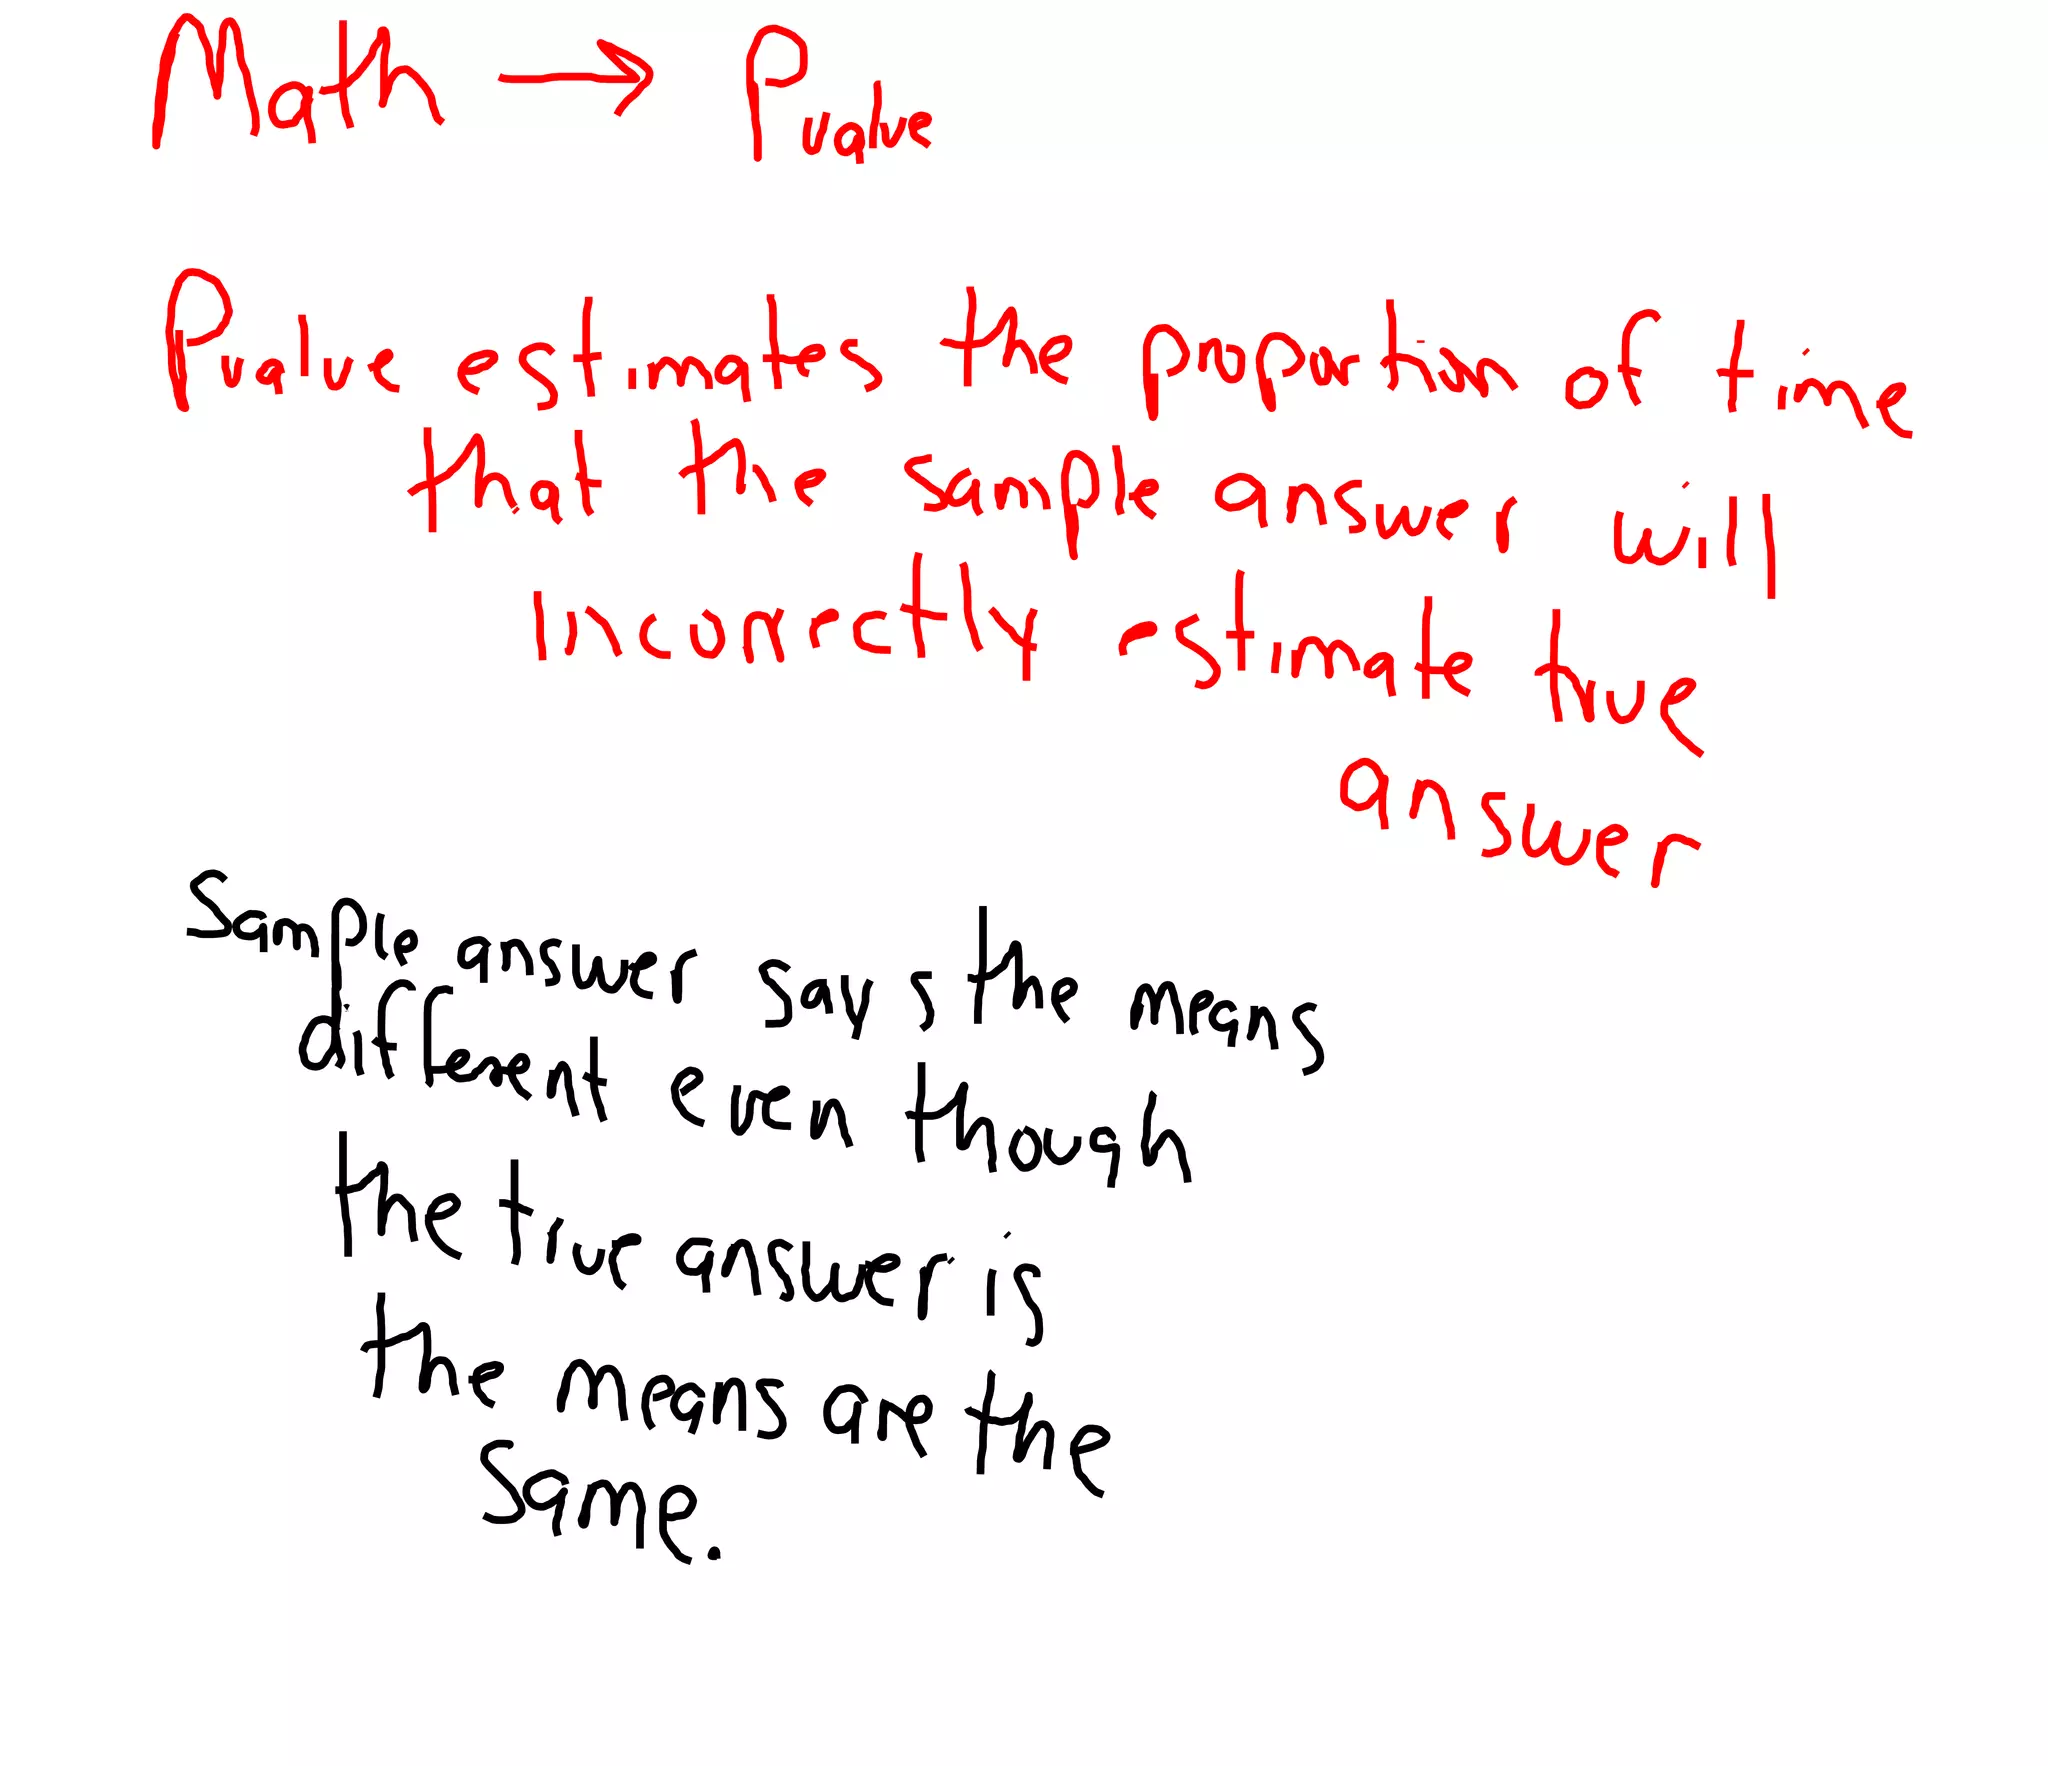 Math → Pvalue
Pvalue estimates the proportion of time
that the sample answer will
incorrectly estimate true
answer
Sample answer says the means
different even though
the true answer is
the means are the
same.